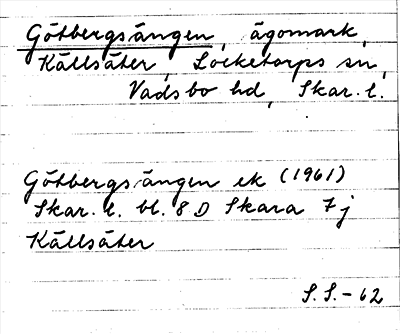 Götbergsängen, ägomark,
Källsäter, Locketorps sn,
Vadsbo hd, Skar. l.
Götbergsängen ek (1961)
Skar. l. bl. 8 D Skara 7 j
Källsäter
S.S. - 62